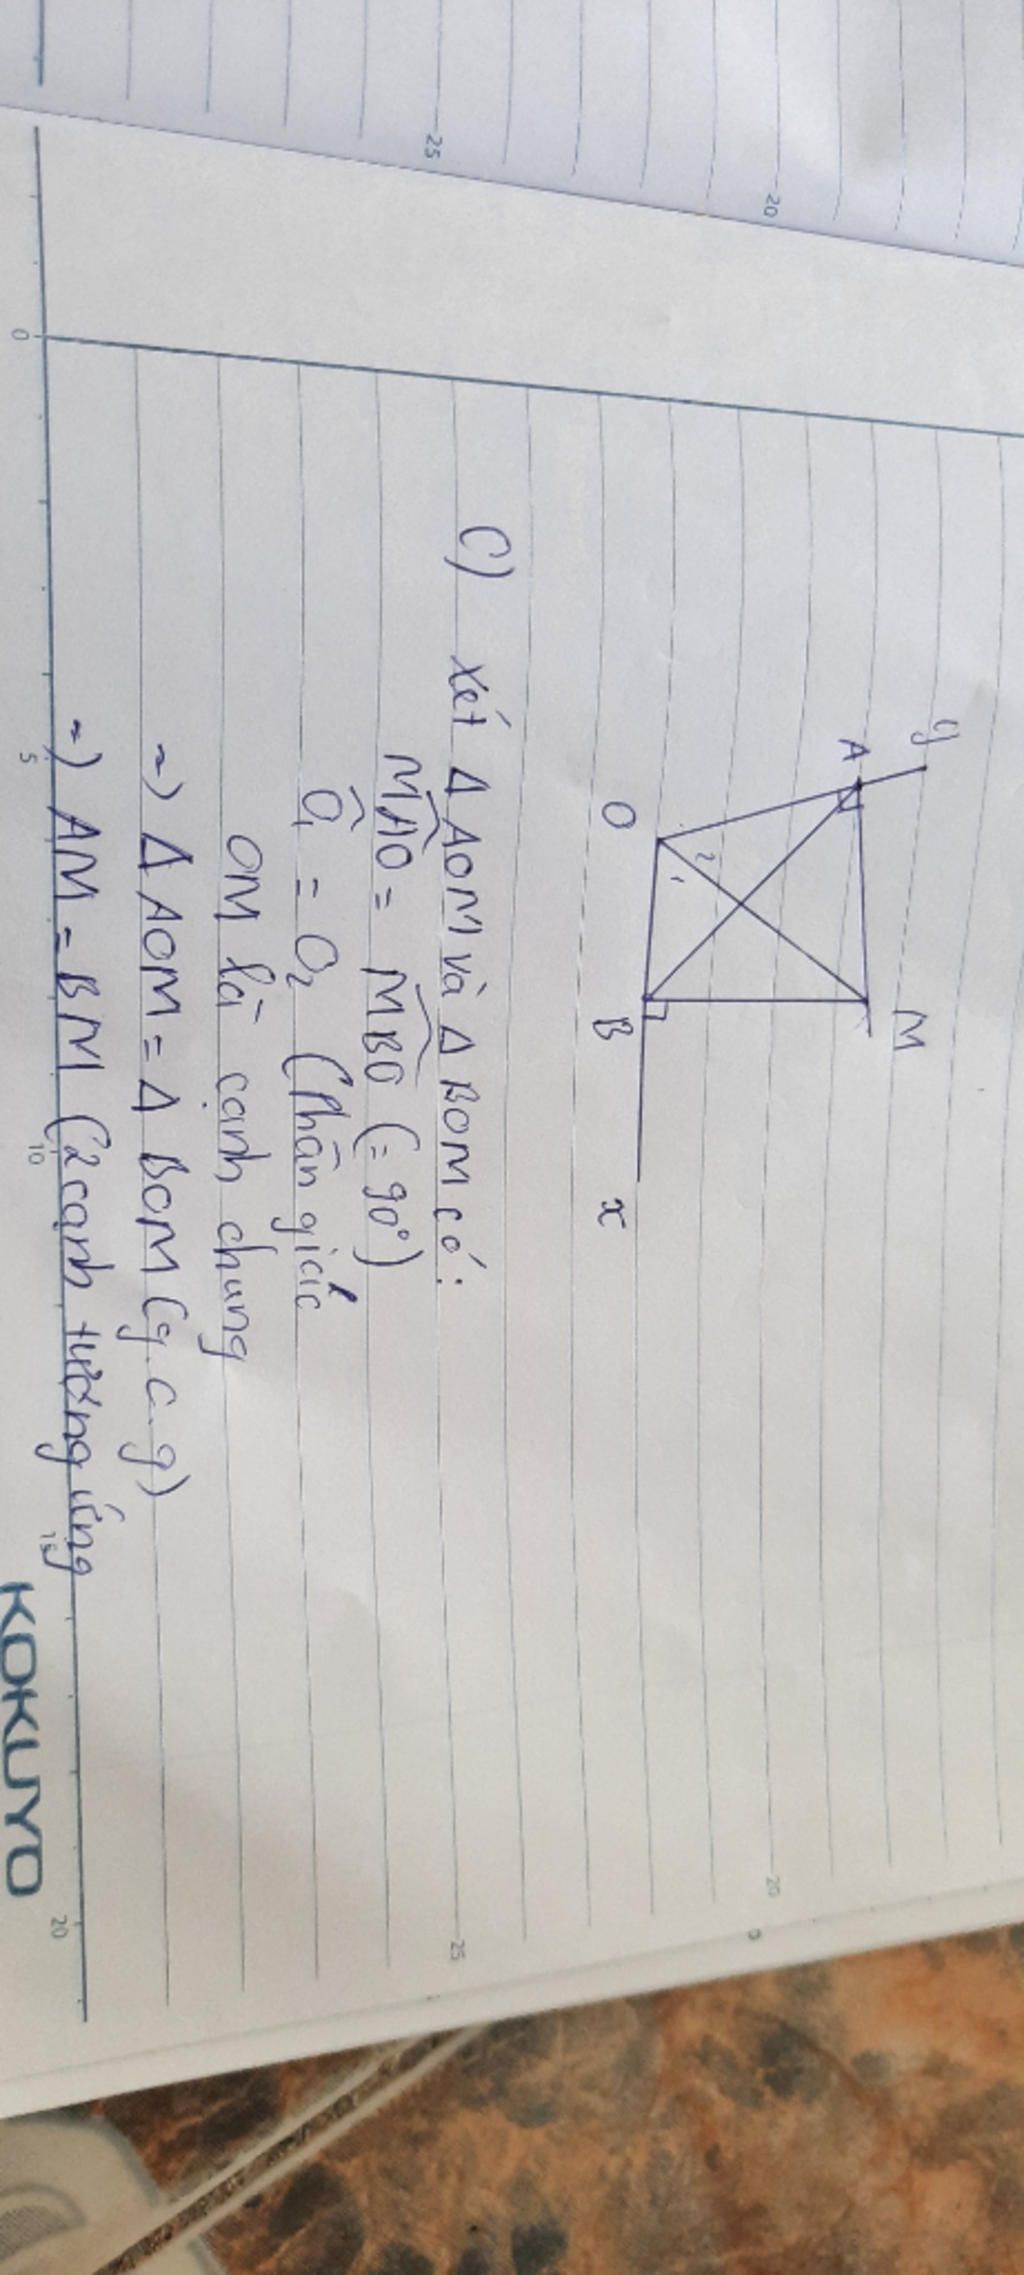 y
A
M
2
1
O
B
x
C) xét Δ AOM và Δ BOM có:
MAO = MBO (= 90°)
O1 = O2 (Phân giác
OM là cạnh chung
=) Δ AOM = Δ BOM (g.c.g)
=) AM = BM (2 cạnh tương ứng
0 5 10 15 20
KOKUYO
25
20
25
20